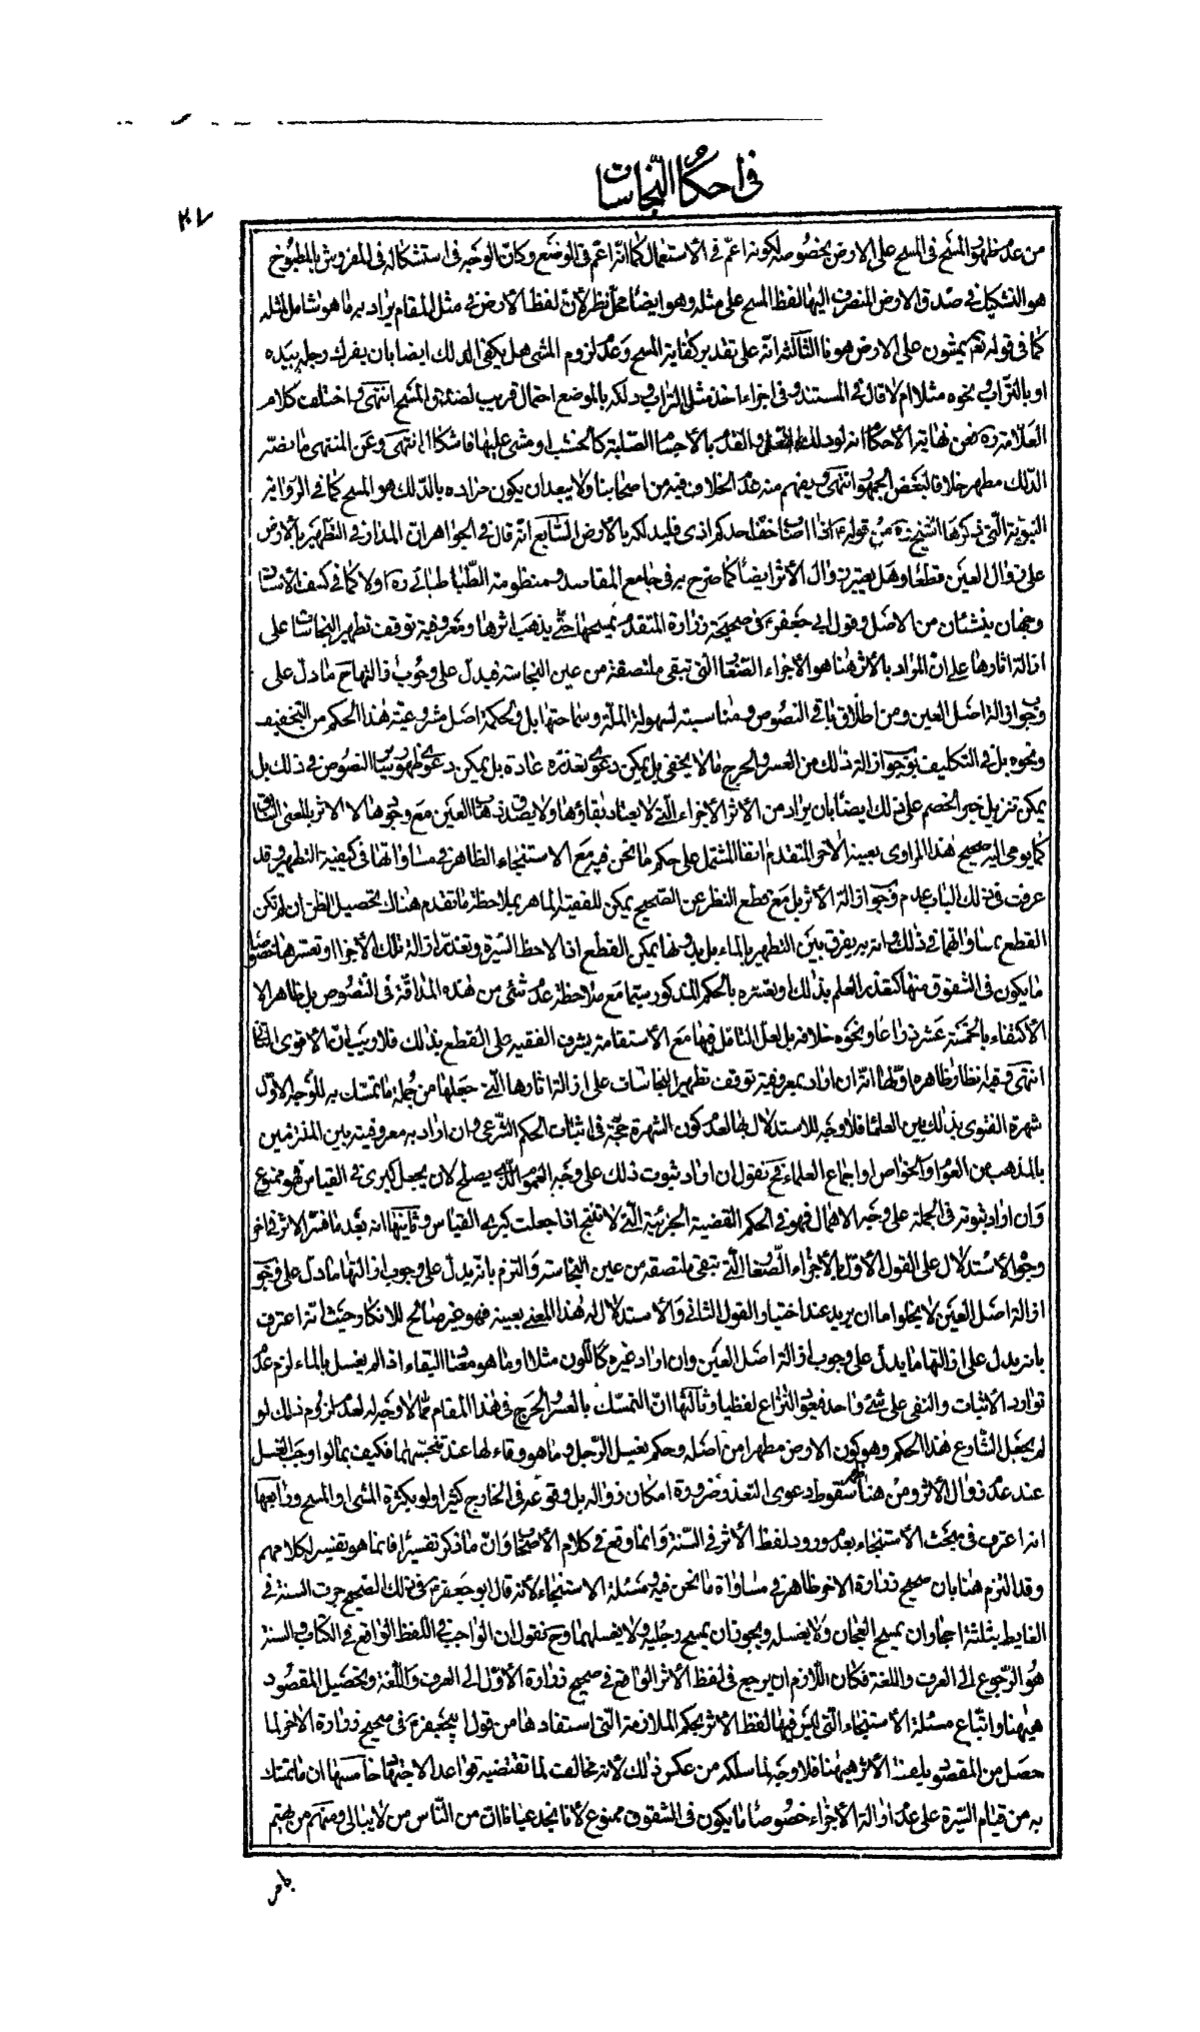 في احكام النجاسات
٢٠٧
من عدم ظهور المسح في المسح على الارض بخصوصه لكونه اعم في الاستعمال كما انه اعم في الوضع وكان الوجه في استشكاله في المفروش بالمطبوخ
هو التشكيك في صدق الارض المنصرف اليها لفظ المسح على مثله وهو ايضا محل نظر لان لفظ الارض في مثل المقام يراد به ما هو شامل لمثله
كما في قوله تعم يمشون على الارض هونا الثالثة انه على تقدير كفاية المسح وعدم لزوم المشي هل يكفي الدلك ايضا بان يفرك رجله بيده
او بالتراب ونحوه مثلا ام لا قال في المستند وفي اجزاء اخذ مثل التراب ودلكه بالموضع احتمال قريب لصدق المسح انتهى واختلف كلام
العلامة ره فعن نهاية الاحكام انه لو دلك النعل والقدم بالاجسام الصلبة كالخشب او مشى عليها فاشكال انتهى وعن المنتهى ما نصه
الدلك مطهر خلافا لبعض الجمهور انتهى ويفهم منه عدم الخلاف فيه من اصحابنا ولا يبعد ان يكون مراده بالدلك هو المسح كما في الرواية
النبوية التي ذكرها الشيخ ره من قوله ع اذا اصاب خف احدكم اذى فليدلكه بالارض السابع انه قال في الجواهر ان المدار في التطهير بالارض
على زوال العين قطعا وهل يعتبر زوال الاثر ايضا كما صرح به في جامع المقاصد ومنظومة الطباطبائي ره او لا كما في كشف الاستاد
وجهان ينشئان من الاصل وقول ابي جعفر ع في صحيحة زرارة المتقدم يمسحها حتى يذهب اثرها ومعروفية توقف تطهير النجاسات على
ازالة اثارها على ان المراد بالاثر هنا هو الاجزاء الصغار التي تبقى ملتصقة من عين النجاسة فيدل على وجوب ازالتها ح ما دل على
وجوب ازالة اصل العين ومن اطلاق باقي النصوص ومناسبته لسهولة الملة وسماحتها بل في حكمة اصل مشروعية هذا الحكم من التخفيف
ونحوه بل في التكليف بوجوب ازالة ذلك من العسر والحرج ما لا يخفى بل يمكن دعوى تعذره عادة بل يمكن دعوى ظهور النصوص في ذلك بل
يمكن تنزيل خبر الخصم على ذلك ايضا بان يراد من الاثر الاجزاء التي لا يعتاد بقاؤها ولا يصدق ذهاب العين مع وجودها لا الاثر بالمعنى السابق
كما يومي اليه صحيح هذا الراوي بعينه الاخر المتقدم انفا المشتمل على حكم ما نحن فيه مع الاستنجاء الظاهر في مساواتها في كيفية التطهير وقد
عرفت في ذلك الباب عدم وجوب ازالة الاثر بل مع قطع النظر عن الصحيح يمكن للفقيه الماهر بملاحظة ما تقدم هناك تحصيل الظن ان لم يكن
القطع بمساواتهما في ذلك وانه به يفرق بين التطهير بالماء بل بدونها يمكن القطع اذا لاحظ السيرة وتعذر ازالة تلك الاجزاء او تعسرها خصوصا
ما يكون في الشقوق منها كتعذر العلم بذلك او تعسره بالحكم المذكور سيما مع ملاحظة عدم شئ من هذه المداقة في النصوص بل ظاهر
الاكتفاء بالخمسة عشر ذراعا ونحوه خلافه بل لعل التامل فيها مع الاستقامة يشرف الفقيه على القطع بذلك فلا ريب ان الاقوى الثاني
انتهى وفيه نظار ظاهره اولها انه ان اراد بمعروفية توقف تطهير النجاسات على ازالة اثارها التي جعلها من جملة ما تمسك به للوجه الاول
شهرة الفتوى بذلك بين العلماء فلا وجه للاستدلال بها لعدم كون الشهرة حجة في اثبات الحكم الشرعي وان اراد به معروفيته بين الملتزمين
بالمذهب من العوام والخواص او اجماع العلماء فح نقول ان اراد ثبوت ذلك على وجه العموم الذي يصلح لان يجعل كبرى في القياس فهو ممنوع
وان اراد ثبوته في الجملة على وجه الاهمال فهو في الحكم القضية الجزئية التي لا تنتج اذا جعلت كبرى القياس وثانيها انه بعد ما فسر الاثر في اخر
وجوه الاستدلال على القول الاول بالاجزاء الصغار التي تبقى ملتصقة من عين النجاسة والتزم بانه يدل على وجوب ازالتها ما دل على وجوب
ازالة اصل العين لا يخلو اما ان يريد عند اختيار القول الثاني والاستدلال له هذا المعنى بعينه فهو غير صالح للانكار حيث انه اعترف
بانه يدل على ازالتها ما يدل على وجوب ازالة اصل العين وان اراد غيره كاللون مثلا وما هو معتاد البقاء اذا لم يغسل بالماء لزم عدم
توارد الاثبات والنفي على شئ واحد فيعود النزاع لفظيا وثالثها ان التمسك بالعسر والحرج في هذا المقام مما لا وجه له لعدم لزوم ذلك لو
لم يجعل الشارع هذا الحكم وهو كون الارض مطهرا من اصله وحكم بغسل الرجل وما هو وقاء لها عند تنجسهما فكيف بما لو اوجب الغسل
عند عدم زوال الاثر ومن هنا ظهر سقوط دعوى التعذر ضرورة امكان زواله بل وقوعه في الخارج كثيرا ولو بكثرة المشي او المسح ورابعها
انه اعترف في مبحث الاستنجاء بعدم ورود لفظ الاثر في السنة وانما وقع في كلام الاصحاب وان ما ذكر تفسيرا فانما هو تفسير لكلامهم
وقد التزم هنا بان صحيح زرارة الاخر ظاهر في مساواة ما نحن فيه ومسئلة الاستنجاء لانه قال ابو جعفر ع في ذلك الصحيح جرت السنة في
الغايط بثلثة احجار ان يمسح العجان ولا يغسله ويجوز ان يمسح رجليه ولا يغسلهما وح نقول ان الواجب في اللفظ الواقع في الكتاب والسنة
هو الرجوع الى العرف واللغة فكان اللازم ان يرجع في لفظ الاثر الواقع في صحيح زرارة الاول الى العرف واللغة وتحصيل المقصود
هيهنا واتباع مسئلة الاستنجاء التي ليس فيها لفظ الاثر بحكم الملازمة التي استفادها من قول ابيجعفر ع في صحيح زرارة الاخر لما
حصل من المقصود بلفظ الاثر هيهنا فلا وجه لما سلكه من عكس ذلك لانه مخالف لما تقتضيه قواعد الاجتهاد خامسها ان ما تمسك
به من قيام السيرة على عدم ازالة الاجزاء خصوصا ما يكون في الشقوق ممنوع لانا نجد عيانا ان من الناس من لا يبالي ومنهم من يهتم
بامر